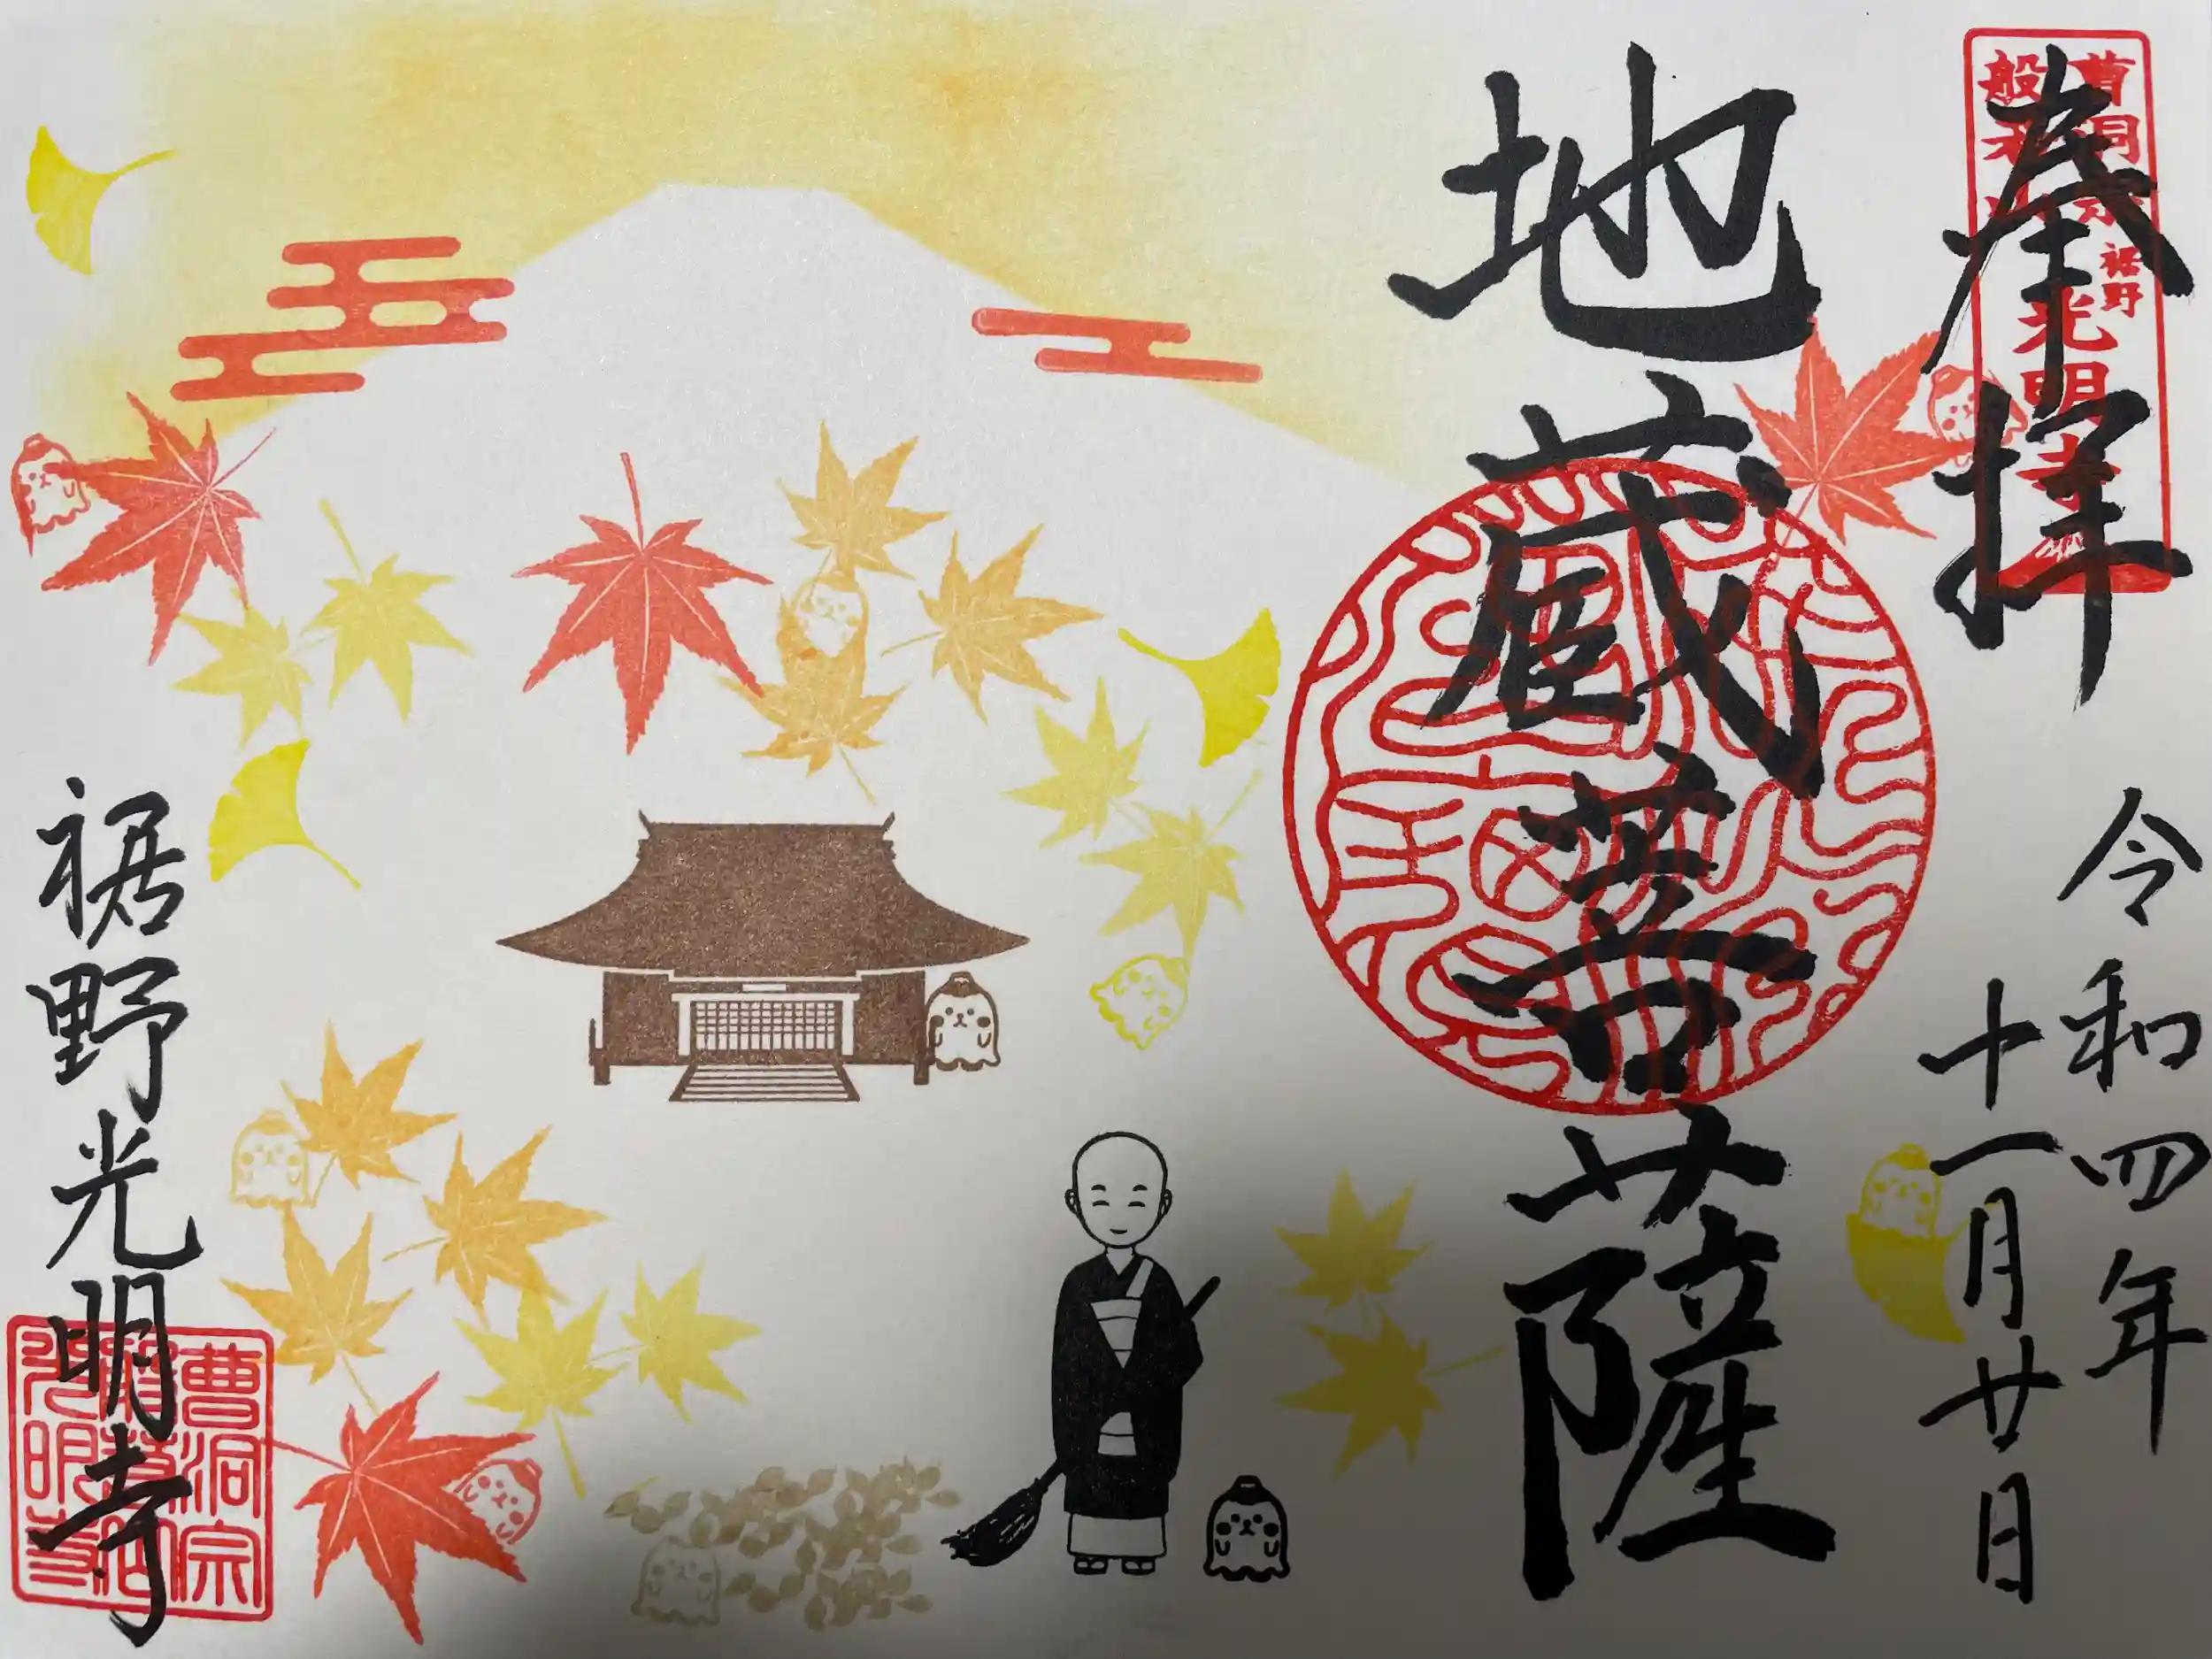 奉拝
令和四年
十一月廿日
地蔵菩薩
裾野光明寺
裾野
光明寺
曹洞宗
光明寺